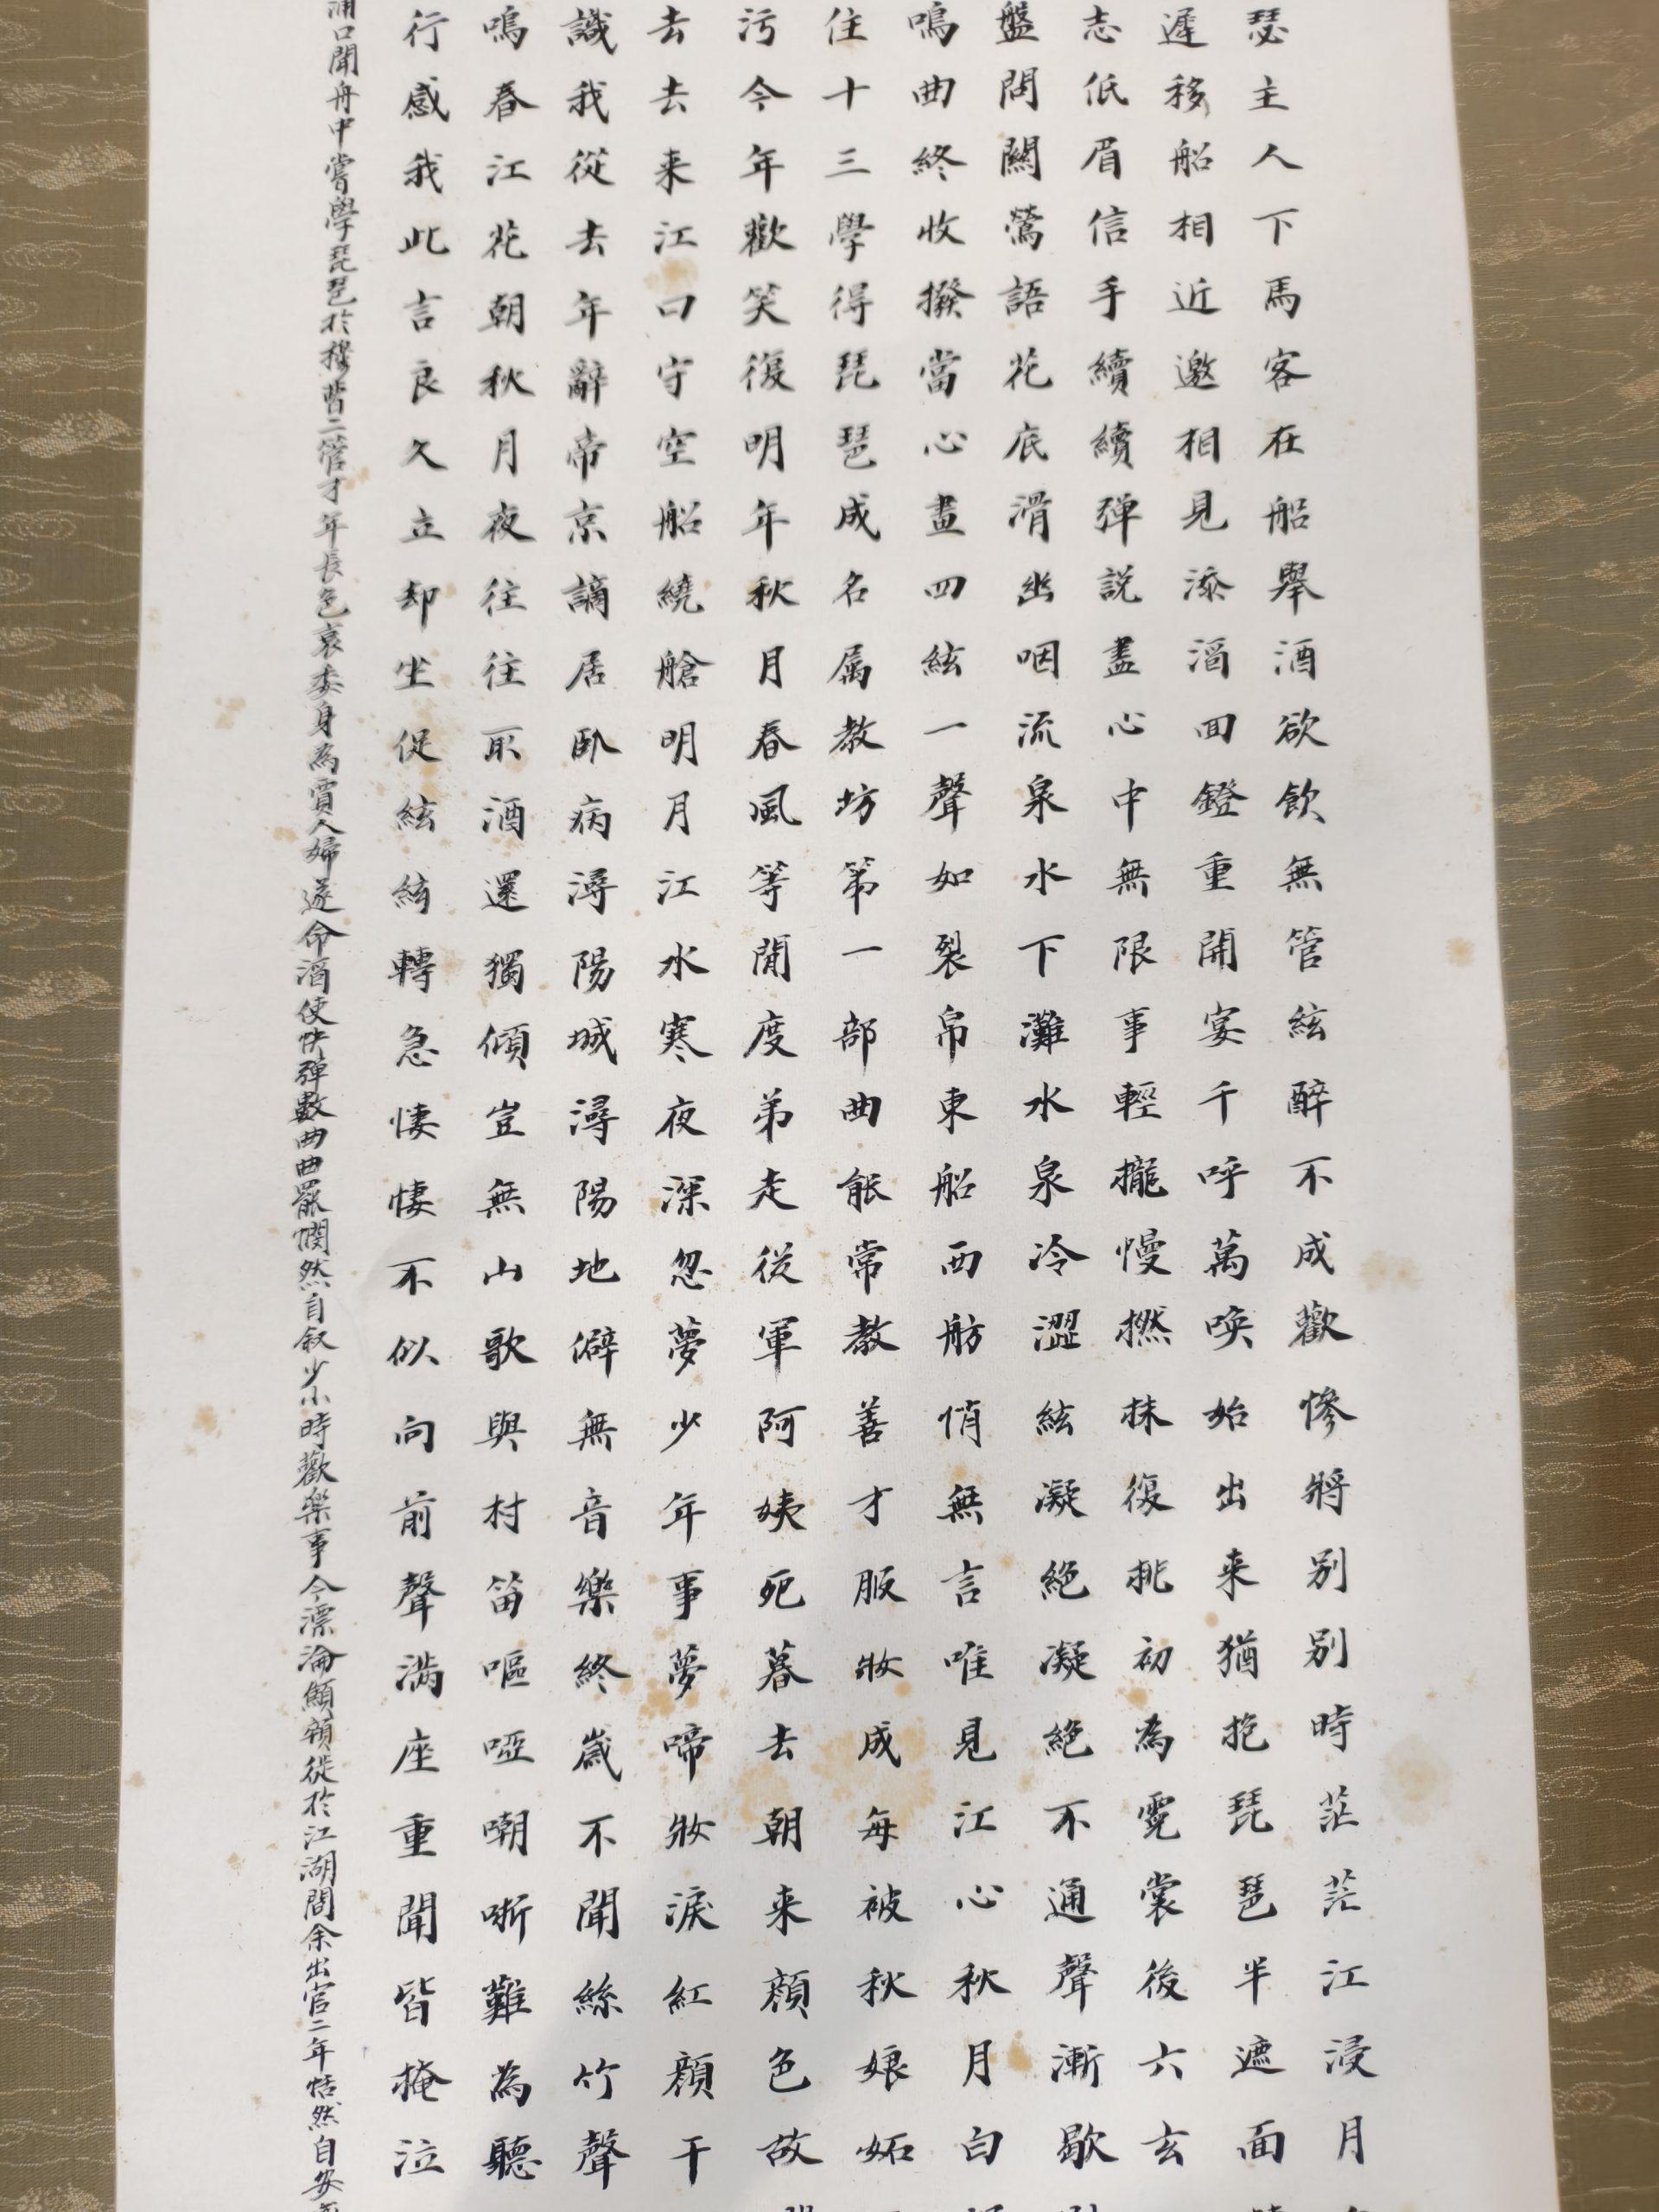 瑟主人下馬客在船舉酒欲飲無管絃醉不成歡慘將別別時茫茫江浸月
遲移船相近邀相見添酒回鐙重開宴千呼萬喚始出来猶抱琵琶半遮面
志低眉信手續續彈説盡心中無限事輕攏慢撚抹復挑初為霓裳後六玄
盤間關鶯語花底滑幽咽流泉水下灘水泉冷澀絃凝絕凝絕不通聲漸歇
鳴曲終收撥當心畫四絃一聲如裂帛東船西舫悄無言唯見江心秋月白
住十三學得琵琶成名属教坊第一部曲罷常教善才服妝成每被秋娘妬
污今年歡笑復明年秋月春風等閒度弟走從軍阿姨死暮去朝来顏色故
去去来江口守空船繞艙明月江水寒夜深忽夢少年事夢啼妝淚紅顏干
識我從去年辭帝京謫居臥病潯陽城潯陽地僻無音樂終歲不聞絲竹聲
鳴春江花朝秋月夜往往取酒還獨傾豈無山歌與村笛嘔啞嘲哳難為聽
行感我此言良久立却坐促絃絃轉急悽悽不似向前聲滿座重聞皆掩泣
浦口聞舟中嘗學琵琶於穆曹二管才年長色衰委身為賈人婦遂命酒使快彈數曲曲罷憫然自敘少小時歡樂事今漂淪顦顇徙於江湖間余出官二年恬然自安